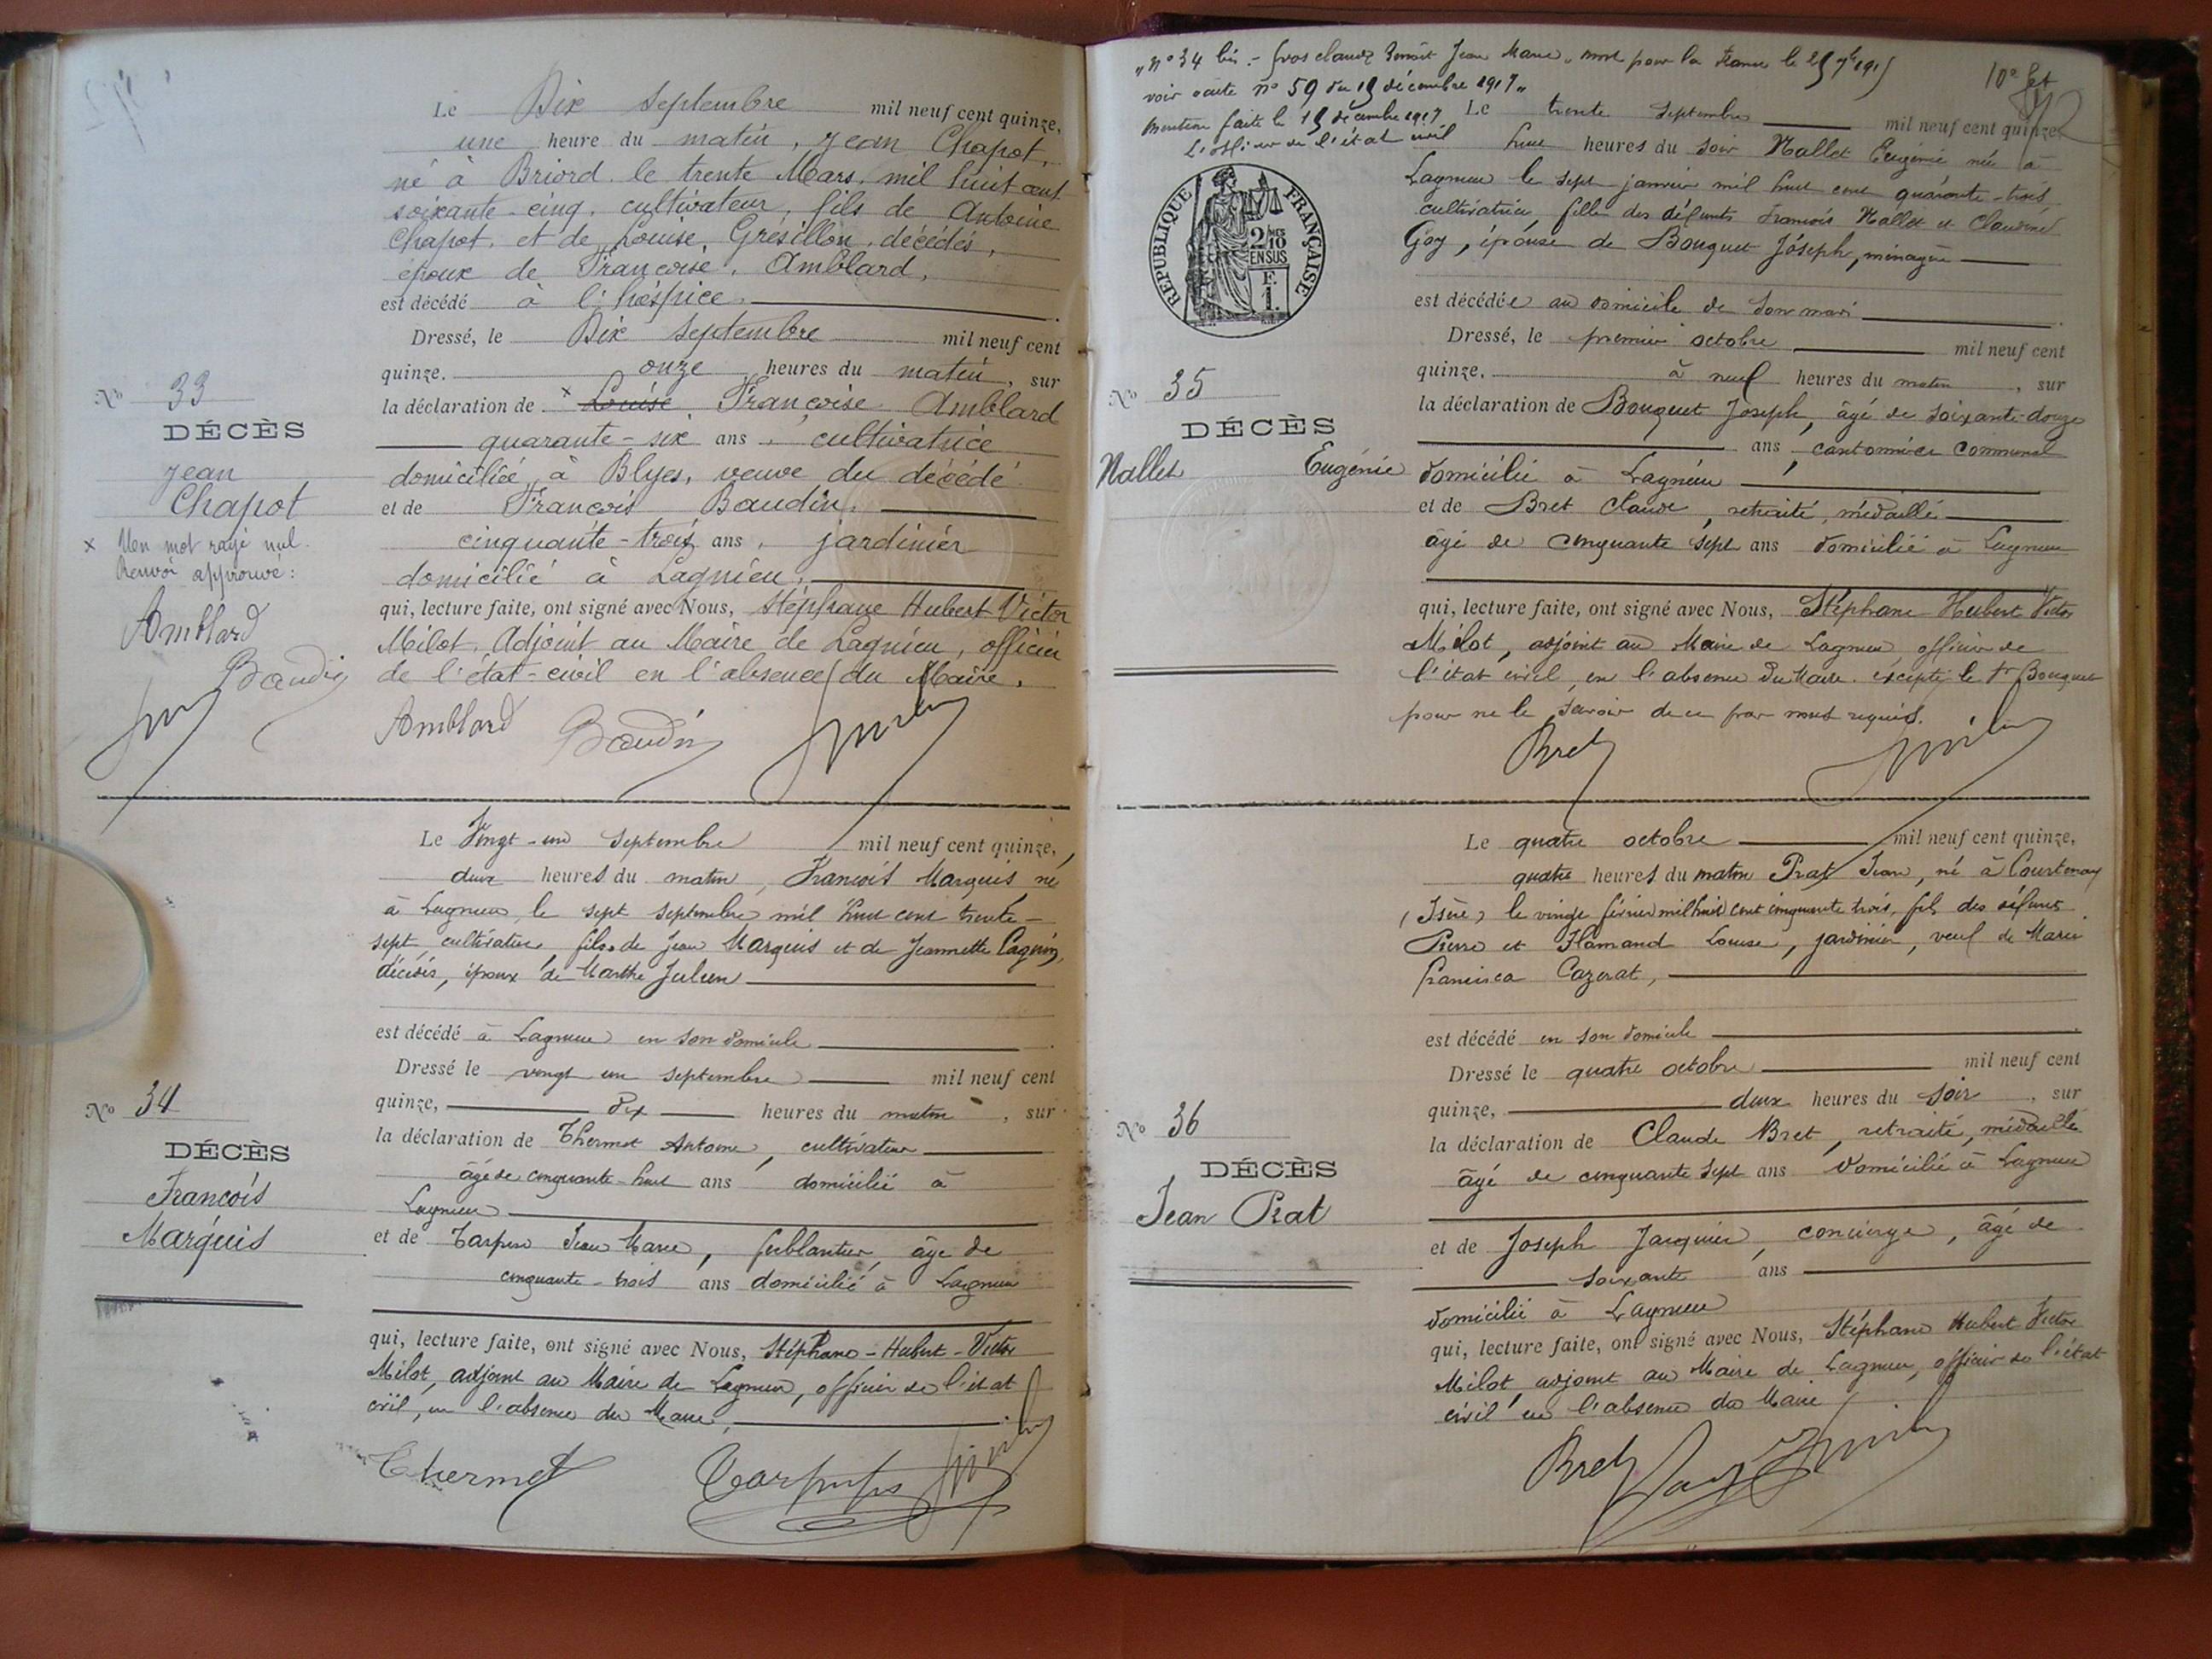 Le Dix Septembre mil neuf cent quinze,
une heure du matin, Jean Chapot,
né à Briord le trente Mars, mil huit cent
soixante-cinq, cultivateur, fils de Antoine
Chapot, et de Louise Grésillon, décédés,
époux de Françoise Amblard,
est décédé à l'hospice.
Dressé, le Dix Septembre mil neuf cent
quinze. onze heures du matin, sur
No 33
la déclaration de × Louise Françoise Amblard
DÉCÈS
quarante-six ans, cultivatrice
Jean
domiciliée à Blyes, veuve du décédé
Chapot
et de François Baudin,
× Un mot rayé nul.
cinquante-trois ans, jardinier
Renvoi approuvé :
domicilié à Lagnieu,
Amblard
qui, lecture faite, ont signé avec Nous, Stéphane Hubert Victor
Milot, Adjoint au Maire de Lagnieu, officier
Baudin
de l'état-civil en l'absence du Maire.
Amblard Baudin
Le Vingt-un Septembre mil neuf cent quinze,
deux heures du matin, François Marquis né
à Lagnieu, le sept septembre mil huit cent trente-
sept, cultivateur fils de Jean Marquis et de Jeannette
décédés, époux de Marthe Julien
est décédé à Lagnieu en son domicile
Dressé le vingt un septembre mil neuf cent
No 34
quinze, dix heures du matin, sur
DÉCÈS
la déclaration de Thermet Antoine, cultivateur
François
âgé de cinquante-huit ans domicilié à
Lagnieu
Marquis
et de Jean Marie, ferblantier, âgé de
cinquante-trois ans domicilié à Lagnieu
qui, lecture faite, ont signé avec Nous, Stéphane-Hubert-Victor
Milot, adjoint au Maire de Lagnieu, officier de l'état
civil, en l'absence du Maire,
Thermet
"No 34 bis.- Gros claude Benoît Jean Marie" mort pour la France le 25 7bre 1915
voir acte no 59 du 19 décembre 1917"
mention faite le 19 décembre 1917
L'officier de l'état civil
10e
Le trente Septembre mil neuf cent quinze
huit heures du soir Nallet Eugénie née à
Lagnieu le sept janvier mil huit cent quarante-trois
cultivatrice, fille des défunts François Nallet et Claudine
Goy, épouse de Bouquet Joseph, ménagère
RÉPUBLIQUE FRANÇAISE
2/10 EN SUS
F.
1.
est décédée au domicile de son mari
Dressé, le premier octobre mil neuf cent
No 35
quinze. à neuf heures du matin, sur
DÉCÈS
la déclaration de Bouquet Joseph, âgé de soixante-douze
ans, cantonnier communal
Nallet Eugénie
domicilié à Lagnieu
et de Bret Claude, retraité, médaillé
âgé de cinquante sept ans domicilié à Lagnieu
qui, lecture faite, ont signé avec Nous, Stéphane Hubert Victor
Milot, adjoint au Maire de Lagnieu officier de
l'état civil, en l'absence du Maire. excepté le Sr Bouquet
pour ne le savoir de ce par nous requis.
Bret
Le quatre octobre mil neuf cent quinze,
quatre heures du matin Prat Jean, né à Courtenay
(Isère) le vingt février mil huit cent cinquante trois, fils des défunts
Pierre et Flamand Louise, jardinier, veuf de Marie
Francisca Cazerat,
est décédé en son domicile
Dressé le quatre octobre mil neuf cent
No 36
quinze, deux heures du soir, sur
DÉCÈS
la déclaration de Claude Bret, retraité, médaillé
Jean Prat
âgé de cinquante sept ans domicilié à Lagnieu
et de Joseph Jacquier, concierge, âgé de
soixante ans
domicilié à Lagnieu
qui, lecture faite, ont signé avec Nous, Stéphane Hubert Victor
Milot, adjoint au Maire de Lagnieu, officier de l'état
civil en l'absence du Maire
Bret